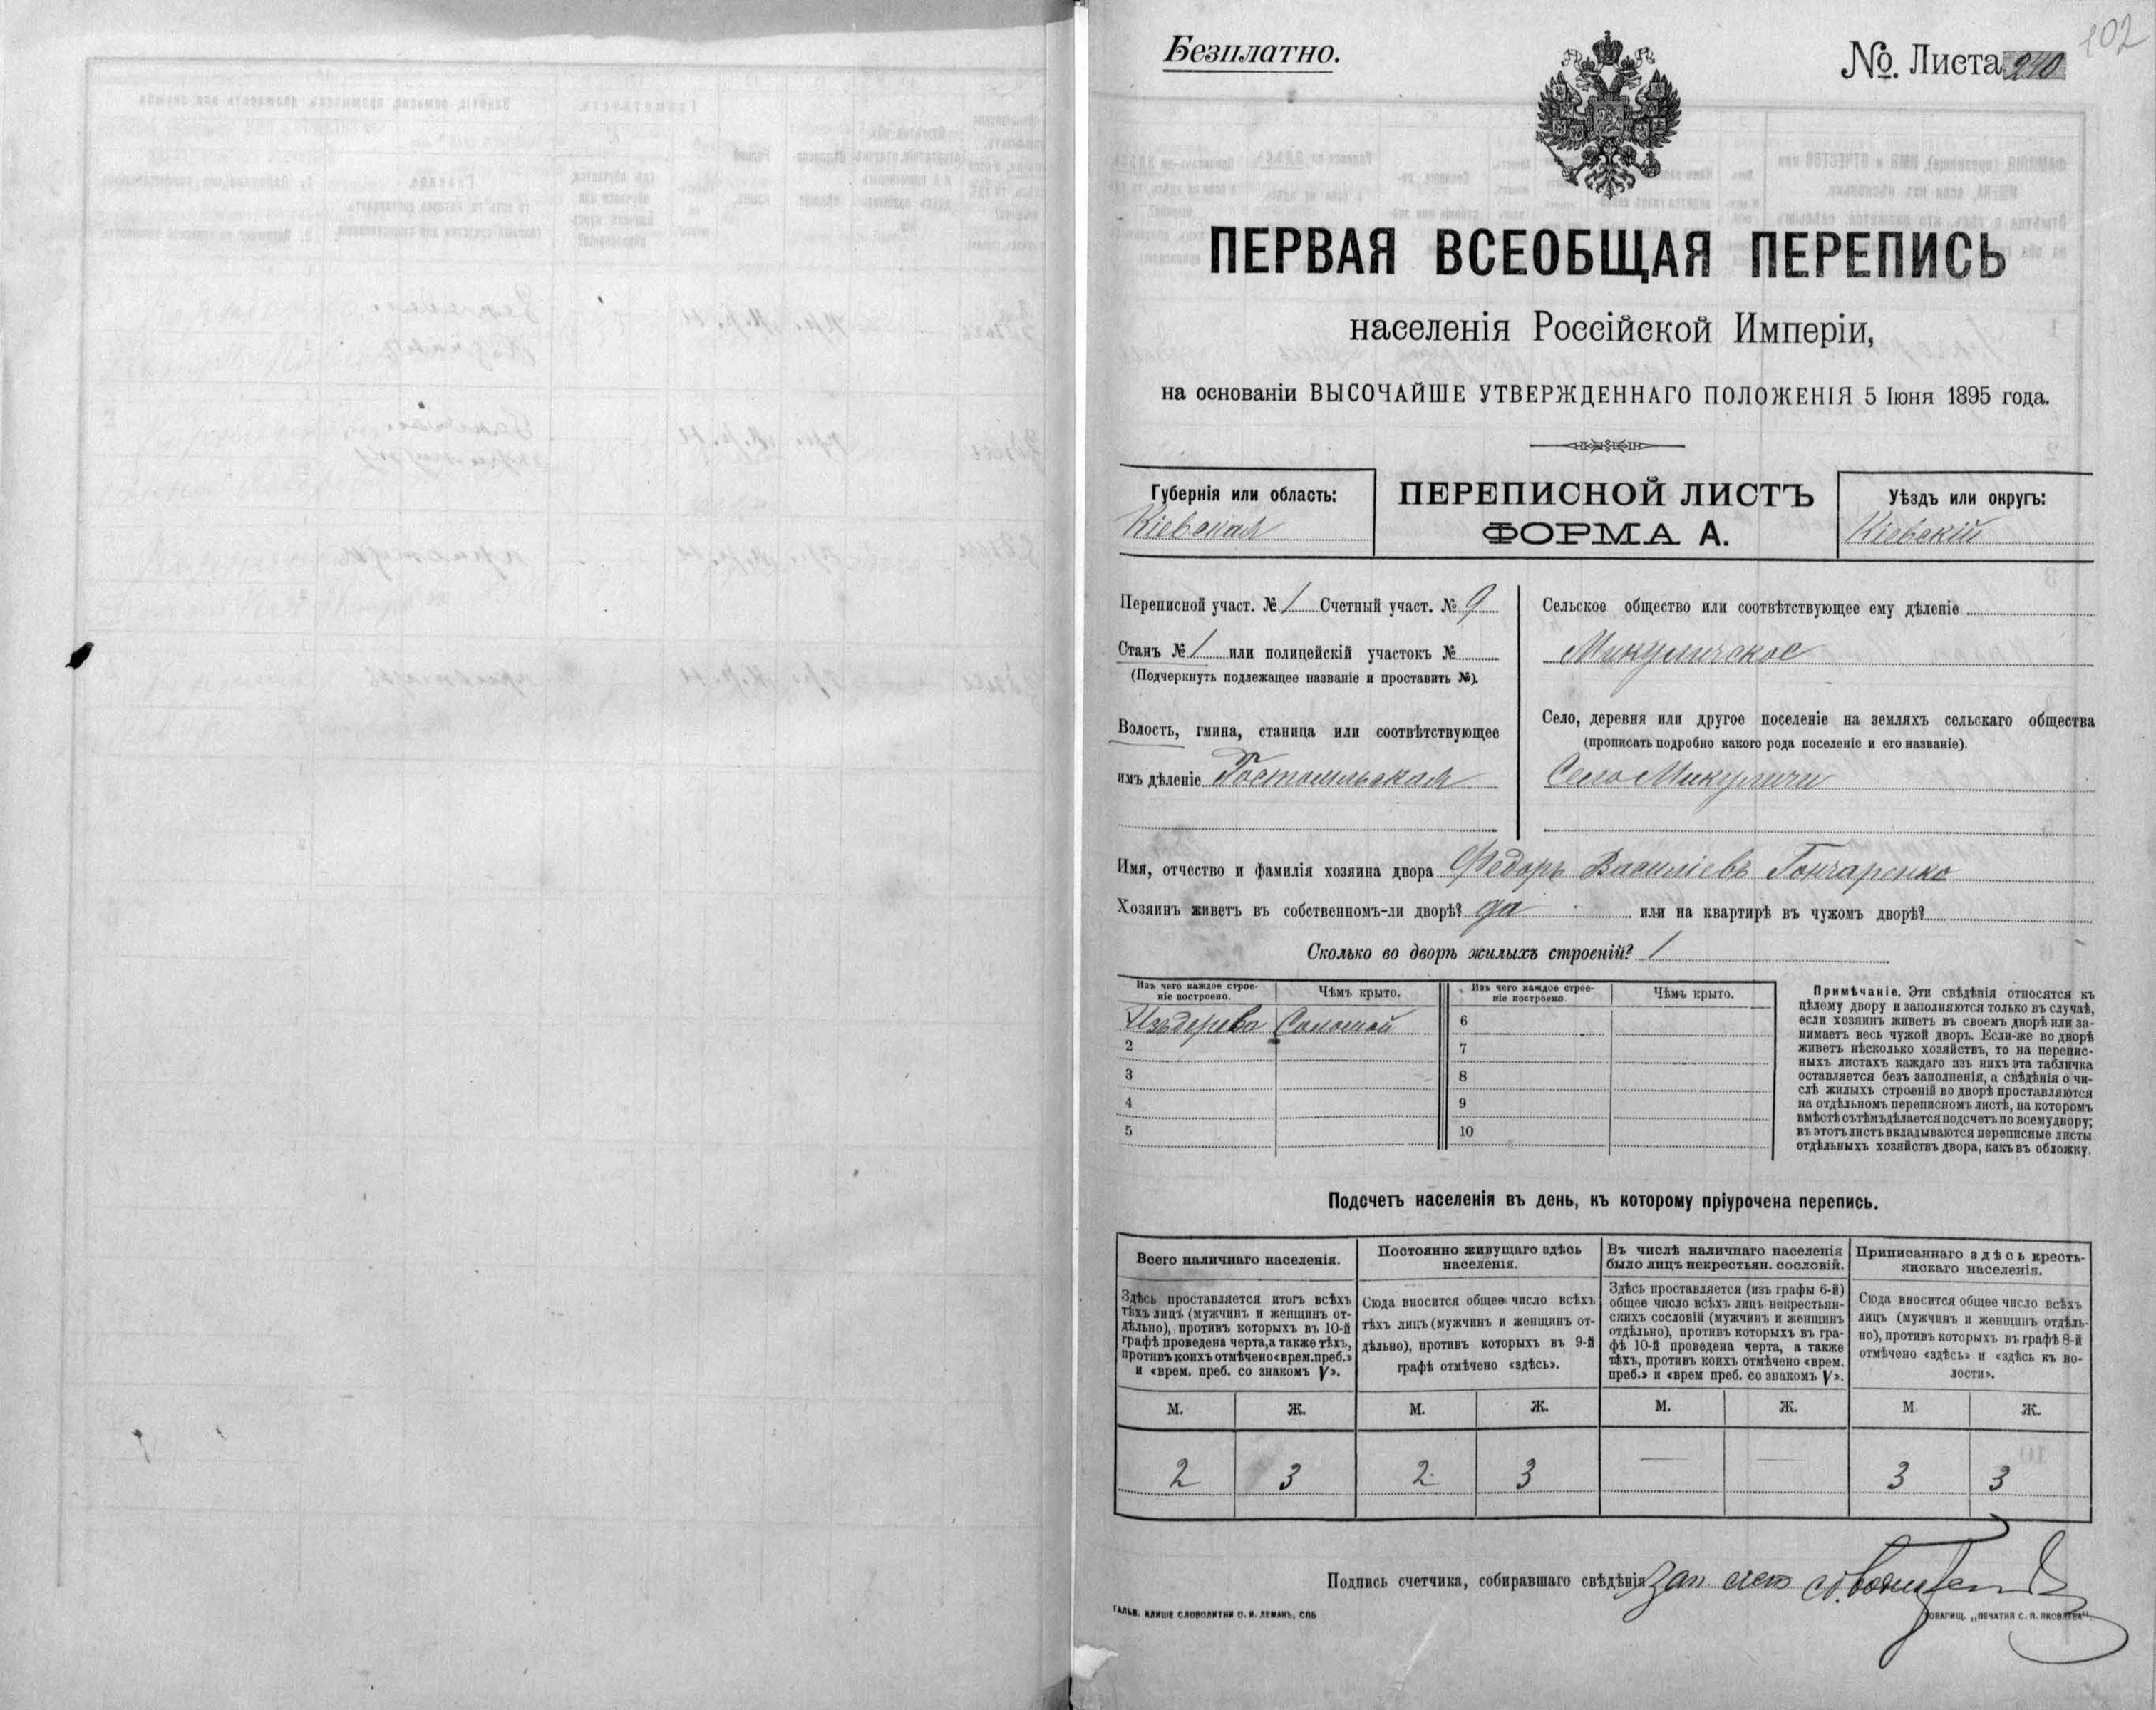 102
Безплатно.
№. Листа 240
ПЕРВАЯ ВСЕОБЩАЯ ПЕРЕПИСЬ
населенія Россійской Имперіи,
на основаніи ВЫСОЧАЙШЕ УТВЕРЖДЕННАГО ПОЛОЖЕНІЯ 5 Іюня 1895 года.
Губернія или область:
Кіевская
ПЕРЕПИСНОЙ ЛИСТЪ
ФОРМА А.
Уѣздъ или округъ:
Кіевскій
Переписной участ. № 1 Счетный участ. № 9
Станъ № 1 или полицейскій участокъ №
(Подчеркнуть подлежащее названіе и проставить №).
Волость, гмина, станица или соотвѣтствующее
имъ дѣленіе Гостомльская
Сельское общество или соотвѣтствующее ему дѣленіе
Микуличское
Село, деревня или другое поселеніе на земляхъ сельскаго общества
(прописать подробно какого рода поселеніе и его названіе).
Село Микуличи
Имя, отчество и фамилія хозяина двора Федоръ Василіевъ Гончаренко
Хозяинъ живетъ въ собственномъ-ли дворѣ? да или на квартирѣ въ чужомъ дворѣ?
Сколько во дворѣ жилыхъ строеній? 1
Изъ чего каждое строе-
ніе построено.
Чѣмъ крыто.
Изъ чего каждое строе-
ніе построено
Чѣмъ крыто.
Изъ дерева Соломой
6
2
7
3
8
4
9
5
10
Примѣчаніе. Эти свѣдѣнія относятся къ
цѣлому двору и заполняются только въ случаѣ,
если хозяинъ живетъ въ своемъ дворѣ или за-
нимаетъ весь чужой дворъ. Если-же во дворѣ
живетъ нѣсколько хозяйствъ, то на перепис-
ныхъ листахъ каждаго изъ нихъ эта табличка
оставляется безъ заполненія, а свѣдѣнія о чи-
слѣ жилыхъ строеній во дворѣ проставляются
на отдѣльномъ переписномъ листѣ, на которомъ
вмѣстѣ съ тѣмъ дѣлается подсчетъ по всему двору;
въ этотъ листъ вкладываются переписные листы
отдѣльныхъ хозяйствъ двора, какъ въ обложку.
Подсчетъ населенія въ день, къ которому пріурочена перепись.
Всего наличнаго населенія.
Здѣсь проставляется итогъ всѣхъ
тѣхъ лицъ (мужчинъ и женщинъ от-
дѣльно), противъ которыхъ въ 10-й
графѣ проведена черта, а также тѣхъ,
противъ коихъ отмѣчено «врем. преб.»
и «врем. преб. со знакомъ V».
Постоянно живущаго здѣсь
населенія.
Сюда вносится общее число всѣхъ
тѣхъ лицъ (мужчинъ и женщинъ от-
дѣльно), противъ которыхъ въ 9-й
графѣ отмѣчено «здѣсь».
Въ числѣ наличнаго населенія
было лицъ некрестьян. сословій.
Здѣсь проставляется (изъ графы 6-й)
общее число всѣхъ лицъ некрестьян-
скихъ сословій (мужчинъ и женщинъ
отдѣльно), противъ которыхъ въ гра-
фѣ 10-й проведена черта, а также
тѣхъ, противъ коихъ отмѣчено «врем.
преб.» и «врем преб. со знакомъ V».
Приписаннаго здѣсь кресть-
янскаго населенія.
Сюда вносится общее число всѣхъ
лицъ (мужчинъ и женщинъ отдѣль-
но), противъ которыхъ въ графѣ 8-й
отмѣчено «здѣсь» и «здѣсь къ во-
лости».
М. Ж. М. Ж. М. Ж. М. Ж.
2 3 2 3 — — 3 3
Подпись счетчика, собиравшаго свѣдѣнія
ГАЛЬВ. КЛИШЕ СЛОВОЛИТНИ О. И. ЛЕМАНЪ, СПБ
ТОВАРИЩ. „ПЕЧАТНЯ С. П. ЯКОВЛЕВА".